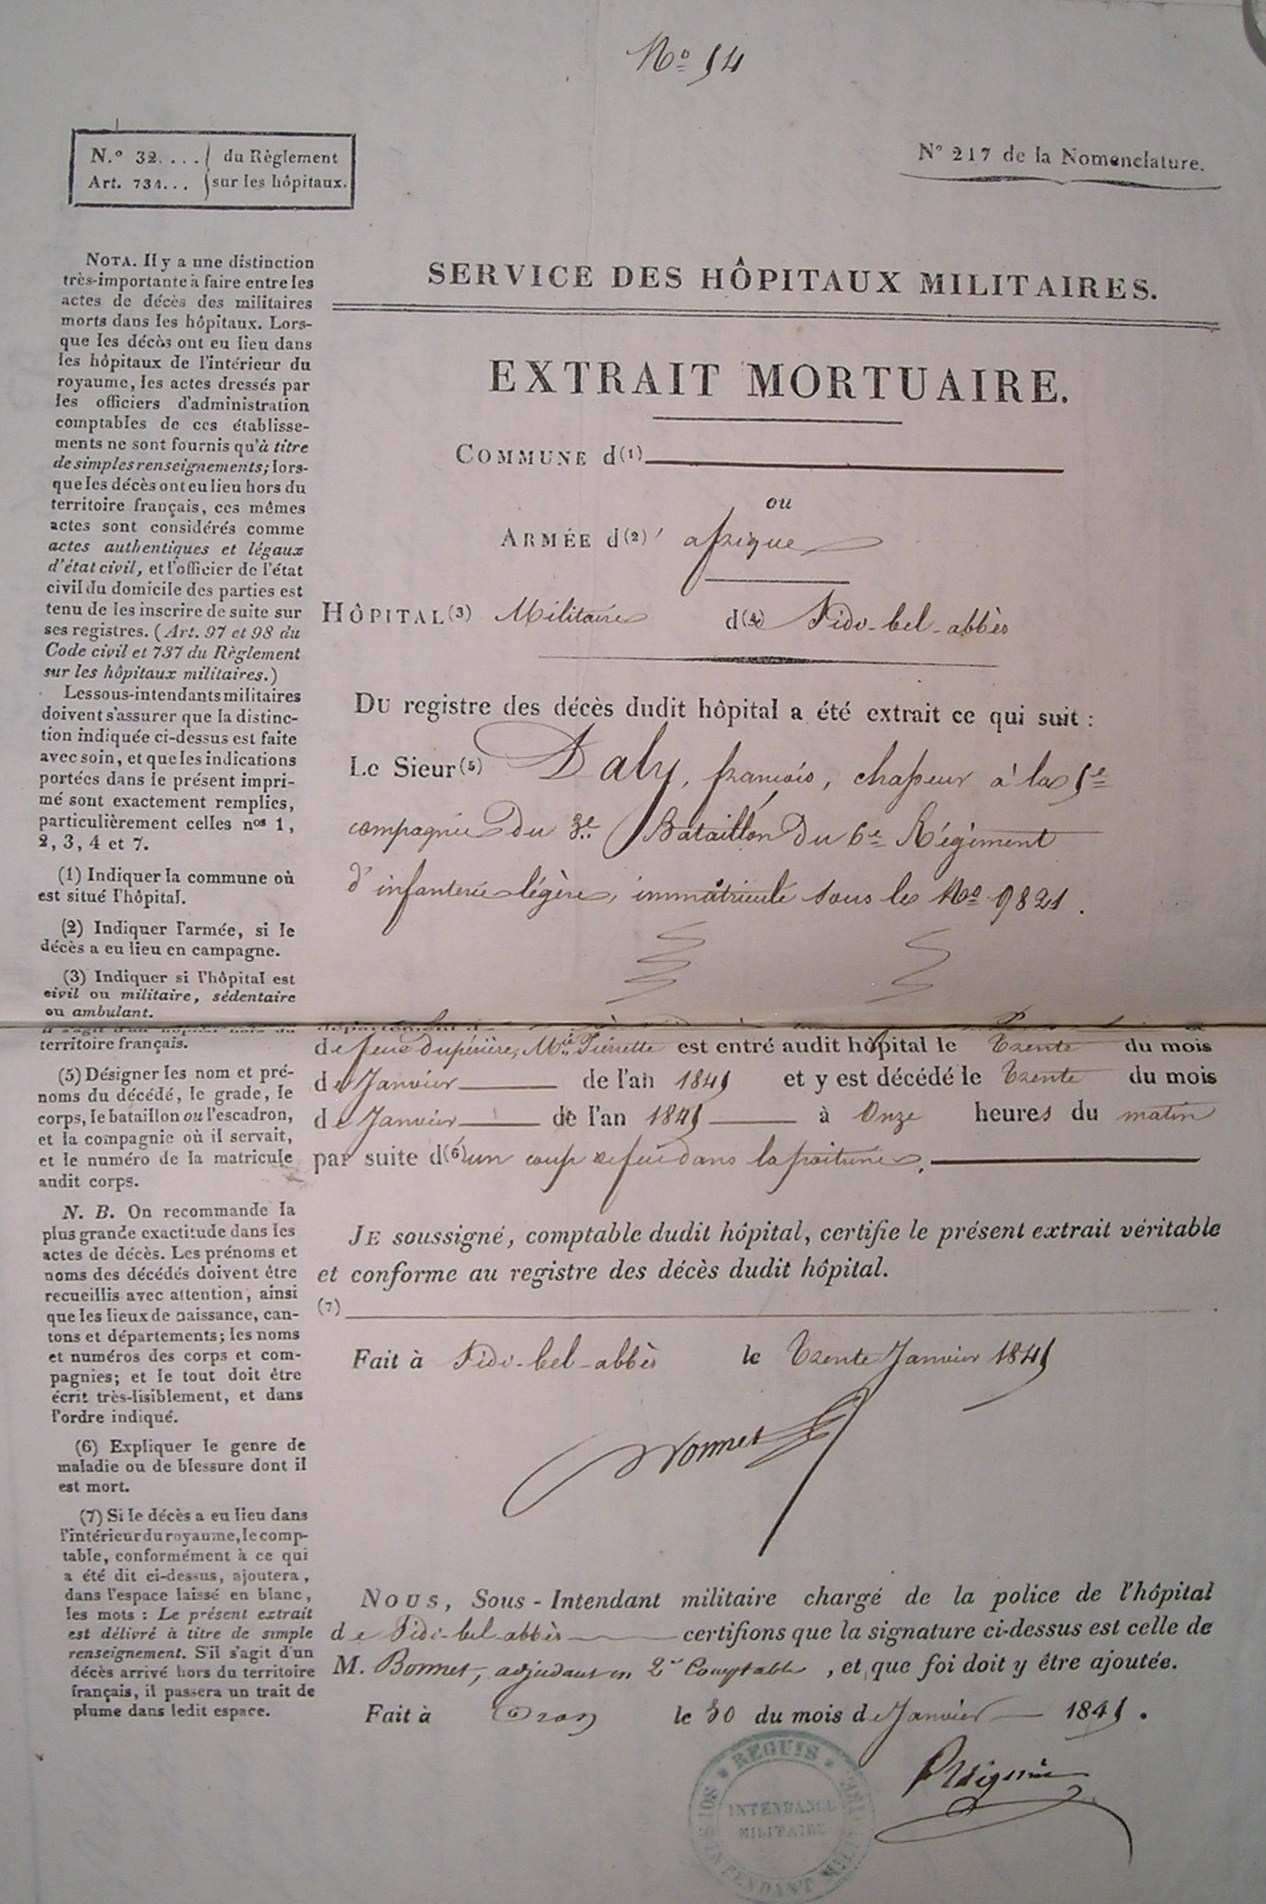 Nº 54
N.º 32.... du Règlement
Art. 731... sur les hôpitaux.
Nº 217 de la Nomenclature.
NOTA. Il y a une distinction
très-importante à faire entre les
actes de décès des militaires
morts dans les hôpitaux. Lors-
que les décès ont eu lieu dans
les hôpitaux de l'intérieur du
royaume, les actes dressés par
les officiers d'administration
comptables de ces établisse-
ments ne sont fournis qu'à titre
de simples renseignements; lors-
que les décès ont eu lieu hors du
territoire français, ces mêmes
actes sont considérés comme
actes authentiques et légaux
d'état civil, et l'officier de l'état
civil du domicile des parties est
tenu de les inscrire de suite sur
ses registres. (Art. 97 et 98 du
Code civil et 737 du Règlement
sur les hôpitaux militaires.)
Les sous-intendants militaires
doivent s'assurer que la distinc-
tion indiquée ci-dessus est faite
avec soin, et que les indications
portées dans le présent impri-
mé sont exactement remplies,
particulièrement celles nos 1,
2, 3, 4 et 7.
(1) Indiquer la commune où
est situé l'hôpital.
(2) Indiquer l'armée, si le
décès a eu lieu en campagne.
(3) Indiquer si l'hôpital est
civil ou militaire, sédentaire
ou ambulant.
territoire français.
(5) Désigner les nom et pré-
noms du décédé, le grade, le
corps, le bataillon ou l'escadron,
et la compagnie où il servait,
et le numéro de la matricule
audit corps.
N. B. On recommande la
plus grande exactitude dans les
actes de décès. Les prénoms et
noms des décédés doivent être
recueillis avec attention, ainsi
que les lieux de naissance, can-
tons et départements; les noms
et numéros des corps et com-
pagnies; et le tout doit être
écrit très-lisiblement, et dans
l'ordre indiqué.
(6) Expliquer le genre de
maladie ou de blessure dont il
est mort.
(7) Si le décès a eu lieu dans
l'intérieur du royaume, le comp-
table, conformément à ce qui
a été dit ci-dessus, ajoutera,
dans l'espace laissé en blanc,
les mots : Le présent extrait
est délivré à titre de simple
renseignement. S'il s'agit d'un
décès arrivé hors du territoire
français, il passera un trait de
plume dans ledit espace.
SERVICE DES HÔPITAUX MILITAIRES.
EXTRAIT MORTUAIRE.
COMMUNE d(1)
ou
ARMÉE d(2)' afrique
HÔPITAL (3) Militaire d(4)e Sidi-bel-abbès
DU registre des décès dudit hôpital a été extrait ce qui suit :
Le Sieur (5) Daly, francois, chasseur à la 5e
compagnie du 3e Bataillon du 6e Régiment
d'infanterie légère, immatriculé sous le No 9821.
de feue Marie Pierrette est entré audit hôpital le Trente du mois
de Janvier de l'an 1845 et y est décédé le Trente du mois
de Janvier de l'an 1845 à Onze heures du matin
par suite d(6)'un coup de feu dans la poitrine.
JE soussigné, comptable dudit hôpital, certifie le présent extrait véritable
et conforme au registre des décès dudit hôpital.
(7)
Fait à Sidi-bel-abbès le Trente Janvier 1845
Bonnet
NOUS, Sous-Intendant militaire chargé de la police de l'hôpital
de Sidi-bel-abbès certifions que la signature ci-dessus est celle de
M. Bonnet, adjudant en 2d Comptable, et que foi doit y être ajoutée.
Fait à Oran le 30 du mois de Janvier 1845.
INTENDANCE
MILITAIRE